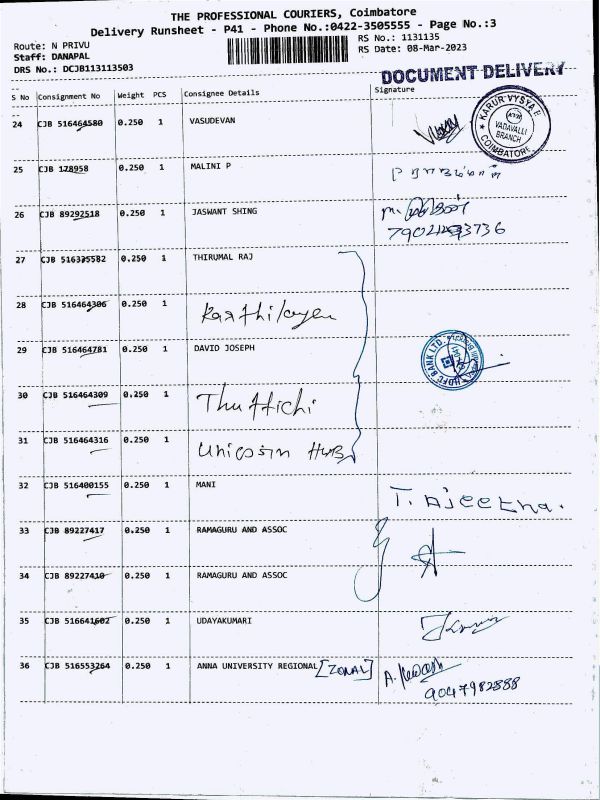 THE PROFESSIONAL COURIERS, Coimbatore
Delivery Runsheet - P41 - Phone No.:0422-3505555 - Page No.:3
Route: N PRIVU
RS No.: 1131135
Staff: DANAPAL
RS Date: 08-Mar-2023
DRS No.: DCJB113113503
DOCUMENT DELIVERY
S No Consignment No Weight PCS Consignee Details Signature
24 CJB 516464580 0.250 1 VASUDEVAN
KARUR VYSYA B
KVB
VADAVALLI
BRANCH
COIMBATORE
25 CJB 178958 0.250 1 MALINI P
26 CJB 89292518 0.250 1 JASWANT SHING
27 CJB 516335582 0.250 1 THIRUMAL RAJ
28 CJB 516464306 0.250 1 Karthikeyan
29 CJB 516464781 0.250 1 DAVID JOSEPH
HDFC BANK LTD.
30 CJB 516464309 0.250 1 Thuttichi
31 CJB 516464316 0.250 1 Unicosin HUB
32 CJB 516400155 0.250 1 MANI T. Ajeetha.
33 CJB 89227417 0.250 1 RAMAGURU AND ASSOC
34 CJB 89227410 0.250 1 RAMAGURU AND ASSOC
35 CJB 516641602 0.250 1 UDAYAKUMARI
36 CJB 516553264 0.250 1 ANNA UNIVERSITY REGIONAL [ZONAL]
9047982888